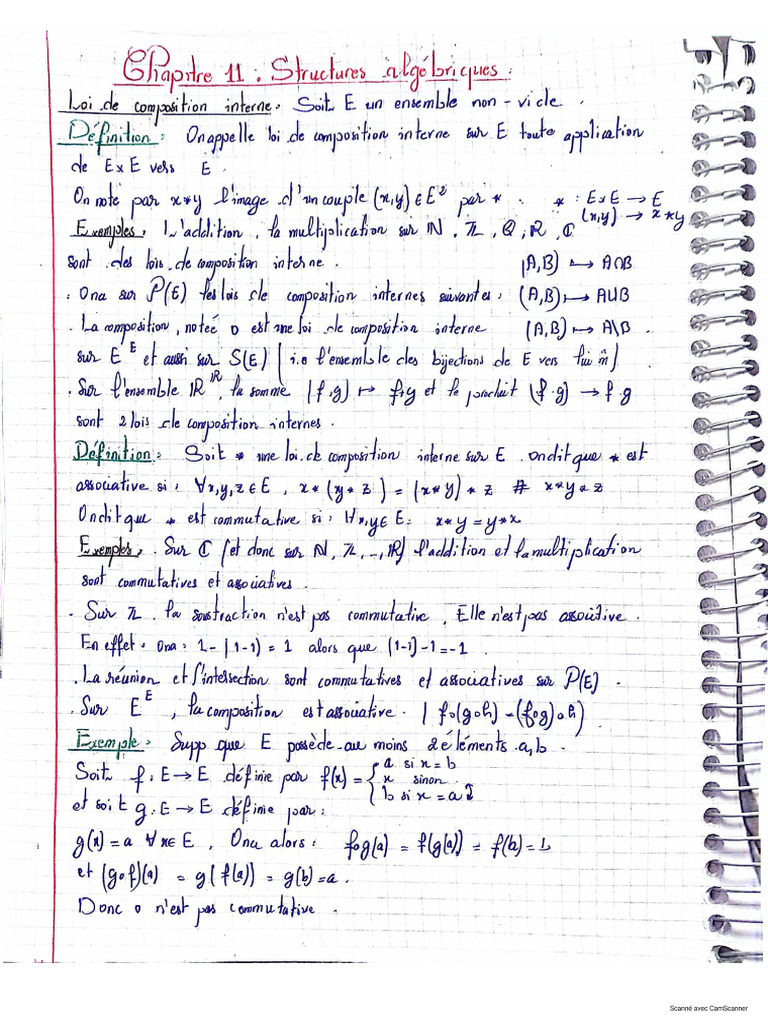 Chapitre 11 : Structures algébriques :
Loi de composition interne. Soit E un ensemble non-vide.
Définition : On appelle loi de composition interne sur E toute application
de E×E vers E
On note par x*y l'image d'un couple (x,y) ∈ E² par * . * : E×E → E
(x,y) → x*y
Exemples. L'addition, la multiplication sur ℕ, ℤ, ℚ, ℝ, ℂ
sont des lois de composition interne. (A,B) ↦ A∩B
. On a sur P(E) les lois de composition internes suivantes : (A,B) ↦ A∪B
. La composition, notée o est une loi de composition interne (A,B) ↦ A\B.
sur E^E et aussi sur S(E) (i.e l'ensemble des bijections de E vers lui m̂)
. Sur l'ensemble ℝ^ℝ, la somme (f,g) ↦ f+g et le produit (f.g) → f.g
sont 2 lois de composition internes.
Définition : Soit * une loi de composition interne sur E. on dit que * est
associative si : ∀x,y,z ∈ E, x*(y*z) = (x*y)*z # x*y*z
On dit que * est commutative si : ∀x,y ∈ E : x*y = y*x
Exemples. Sur ℂ (et donc sur ℕ, ℤ, .., ℝ) l'addition et la multiplication
sont commutatives et associatives.
. Sur ℤ la soustraction n'est pas commutative, Elle n'est pas associative.
En effet. On a : 1-(1-1) = 1 alors que (1-1)-1 = -1
. La réunion et l'intersection sont commutatives et associatives sur P(E).
. Sur E^E, la composition est associative. (fo(goh) - (fog)oh)
Exemple : Supp que E possède au moins 2 éléments a,b.
Soit f : E → E définie par f(x) = { a si x = b
x sinon
b si x = a
et soit g : E → E définie par :
g(x) = a ∀x∈E, On a alors : fog(a) = f(g(a)) = f(b) = b
et (gof)(a) = g(f(a)) = g(b) = a.
Donc o n'est pas commutative.
Scanné avec CamScanner